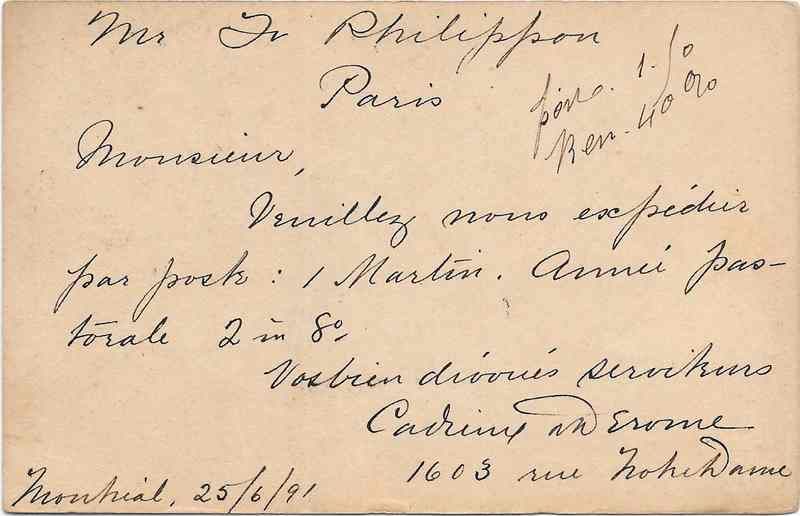 Mr Tr Philippon
Paris
port. 1.50
Rem. 40 0/0
Monsieur,
Veuillez nous expédier
par poste : 1 Martin. Année pas-
torale 2 in 8º.
Vos bien dévoués serviteurs
Cadieux & Derome
1603 rue Notre Dame
Montréal, 25/6/91